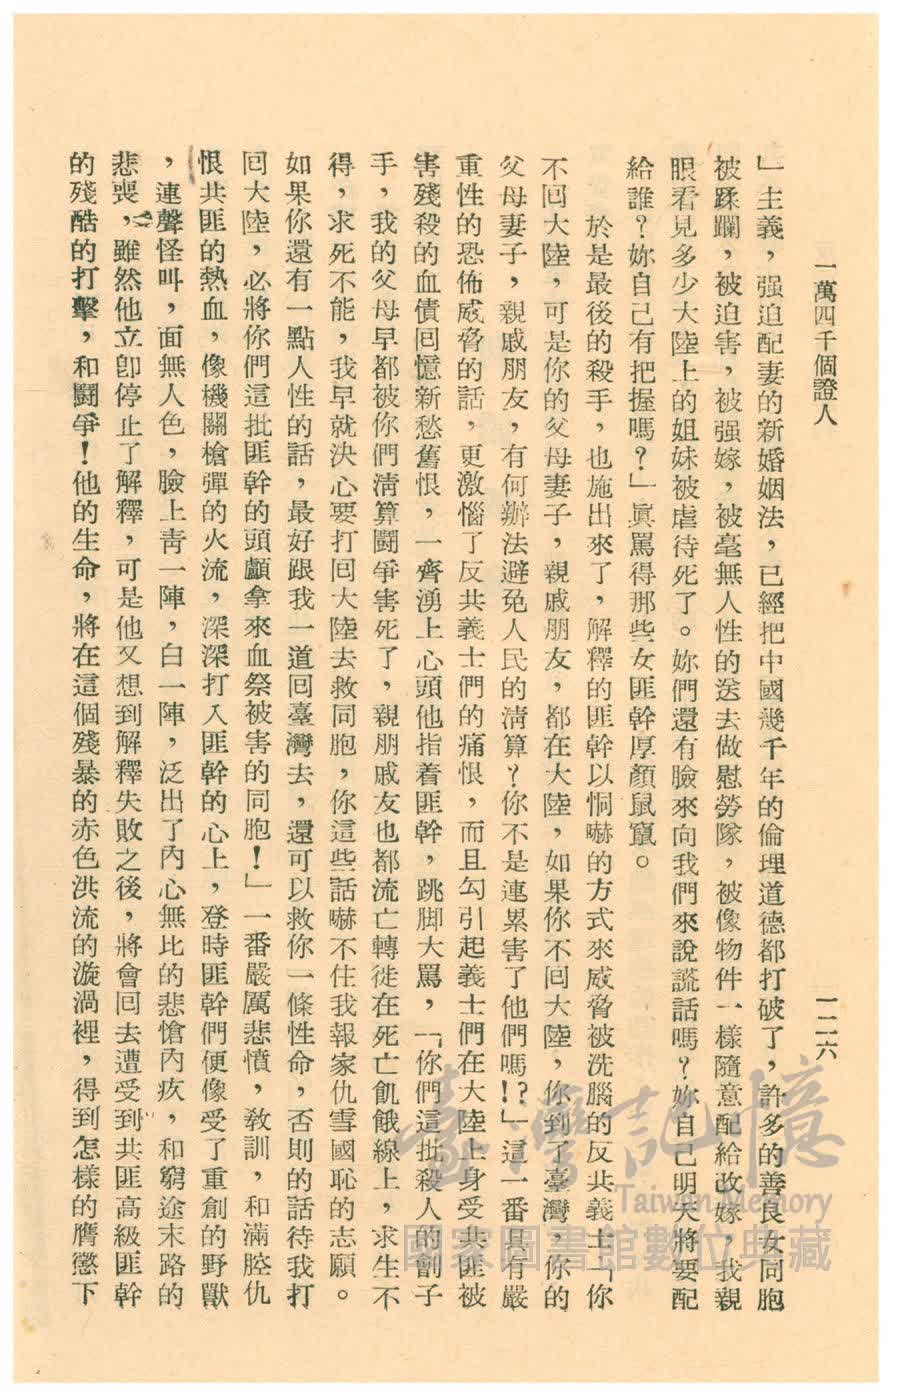 一萬四千個證人
一二六
」主義，强迫配妻的新婚姻法，已經把中國幾千年的倫理道德都打破了，許多的善良女同胞
被蹂躪，被迫害，被强嫁，被毫無人性的送去做慰勞隊，被像物件一樣隨意配給改嫁，我親
眼看見多少大陸上的姐妹被虐待死了。妳們還有臉來向我們來說謊話嗎？妳自己明天將要配
給誰？妳自己有把握嗎？」眞罵得那些女匪幹厚顏鼠竄。
於是最後的殺手，也施出來了，解釋的匪幹以恫嚇的方式來威脅被洗腦的反共義士「你
不回大陸，可是你的父母妻子，親戚朋友，都在大陸，如果你不回大陸，你到了臺灣，你的
父母妻子，親戚朋友，有何辦法避免人民的淸算？你不是連累害了他們嗎！？」這一番具有嚴
重性的恐佈威脅的話，更激惱了反共義士們的痛恨，而且勾引起義士們在大陸上身受共匪被
害殘殺的血債回憶新愁舊恨，一齊湧上心頭他指着匪幹，跳脚大罵，「你們這批殺人的劊子
手，我的父母早都被你們淸算鬪爭害死了，親朋戚友也都流亡轉徙在死亡飢餓線上，求生不
得，求死不能，我早就決心要打回大陸去救同胞，你這些話嚇不住我報家仇雪國恥的志願。
如果你還有一點人性的話，最好跟我一道回臺灣去，還可以救你一條性命，否則的話待我打
回大陸，必將你們這批匪幹的頭顱拿來血祭被害的同胞！」一番嚴厲悲憤，敎訓，和滿腔仇
恨共匪的熱血，像機關槍彈的火流，深深打入匪幹的心上，登時匪幹們便像受了重創的野獸
，連聲怪叫，面無人色，臉上靑一陣，白一陣，泛出了內心無比的悲愴內疚，和窮途末路的
悲喪，雖然他立卽停止了解釋，可是他又想到解釋失敗之後，將會回去遭受到共匪高級匪幹
的殘酷的打擊，和鬪爭！他的生命，將在這個殘暴的赤色洪流的漩渦裡，得到怎樣的膺懲下
臺灣記憶
Taiwan Memory
國家圖書館數位典藏